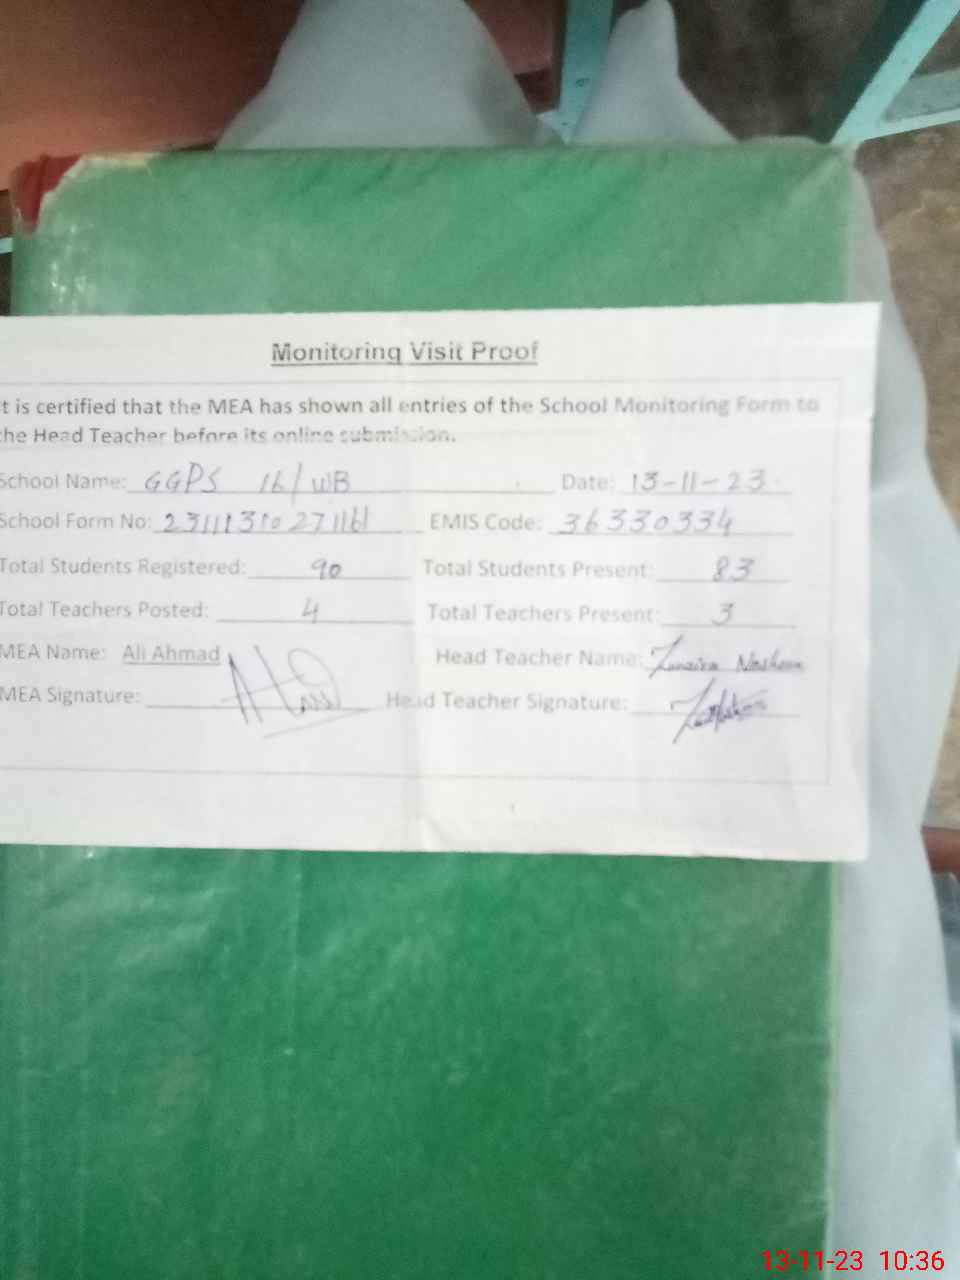 Monitoring Visit Proof
t is certified that the MEA has shown all entries of the School Monitoring Form to
the Head Teacher before its online submission.
School Name: GGPS 16/WB Date: 13-11-23
School Form No: 23111310271161 EMIS Code: 36330334
Total Students Registered: 90 Total Students Present: 83
Total Teachers Posted: 4 Total Teachers Present: 3
MEA Name: Ali Ahmad Head Teacher Name:
MEA Signature: Head Teacher Signature:
13-11-23 10:36